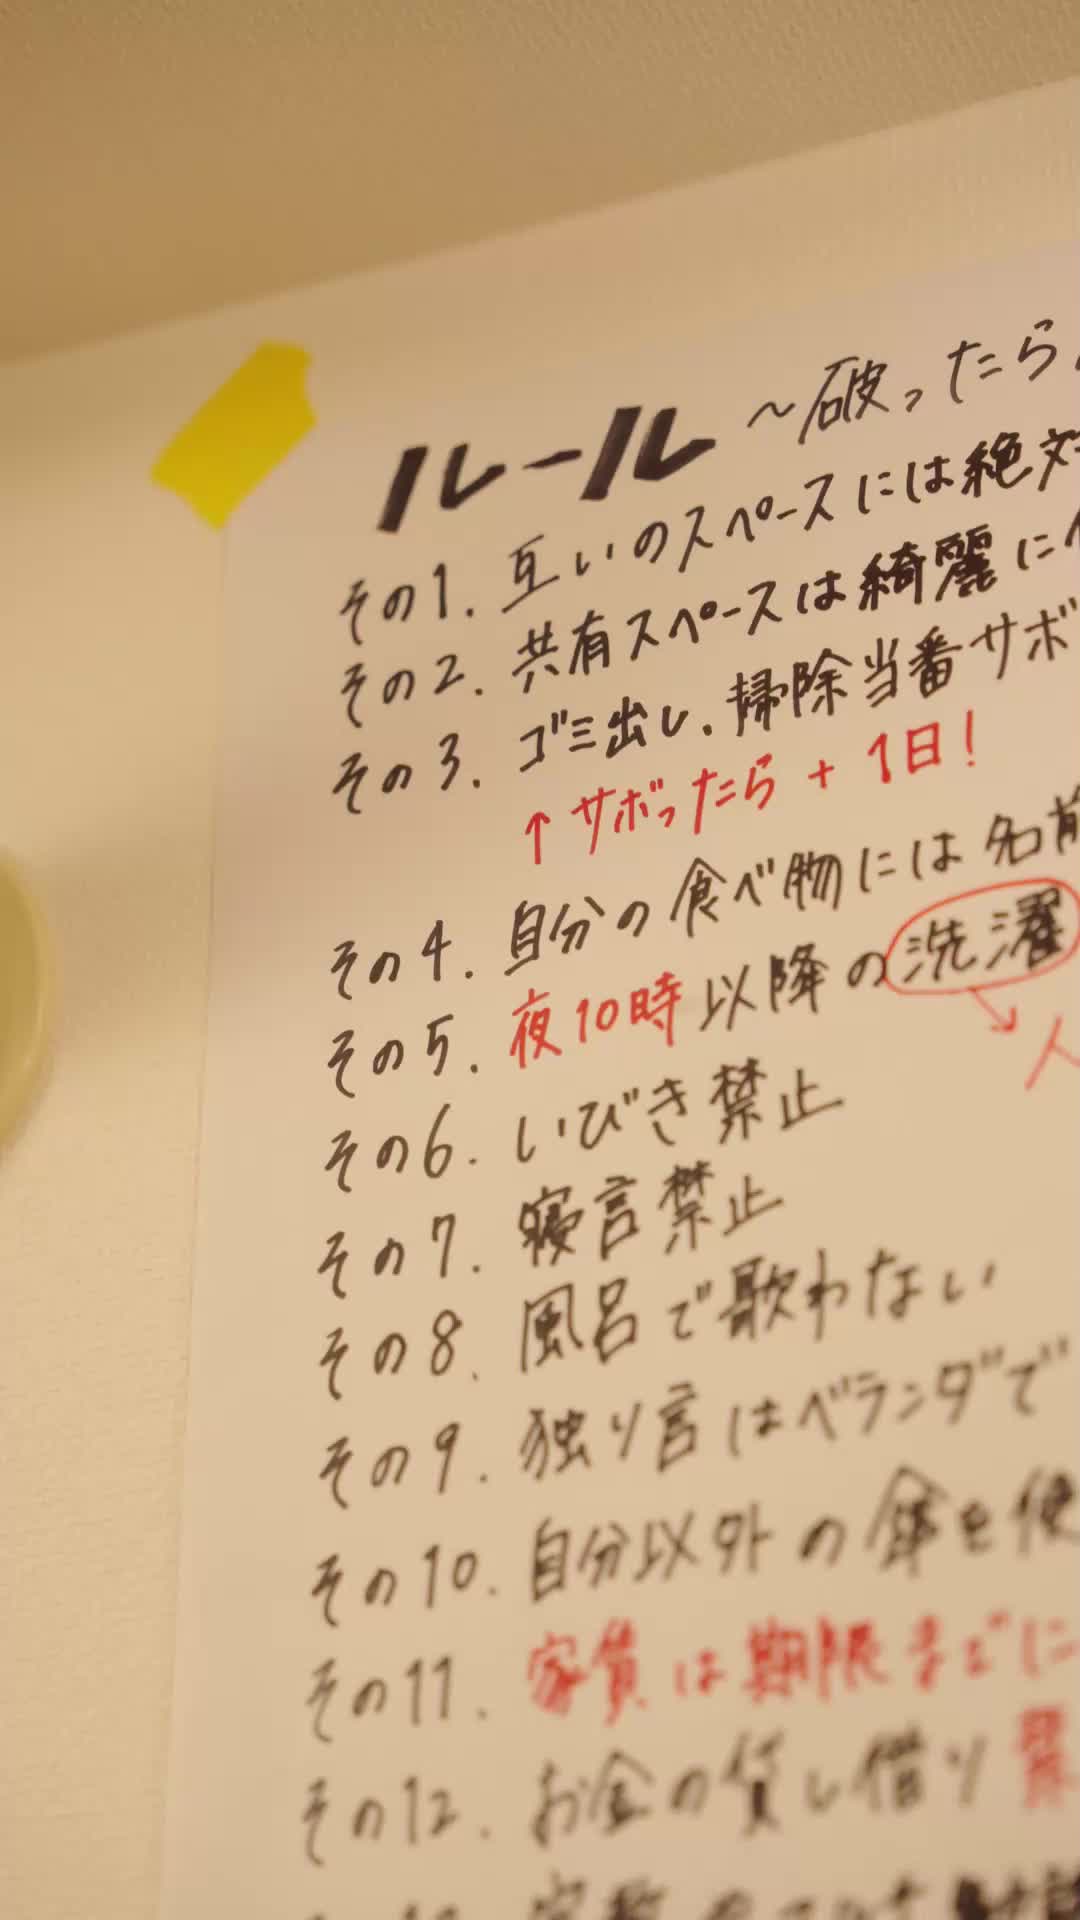 ルール 〜破ったら
その1. 互いのスペースには絶対
その2. 共有スペースは綺麗に
その3. ゴミ出し、掃除当番サボ
↑サボったら+1日!
その4. 自分の食べ物には名前
その5. 夜10時以降の洗濯
→人
その6. いびき禁止
その7. 寝言禁止
その8. 風呂で歌わない
その9. 独り言はベランダで
その10. 自分以外の傘を使
その11. 家賃は期限までに
その12. お金の貸し借り